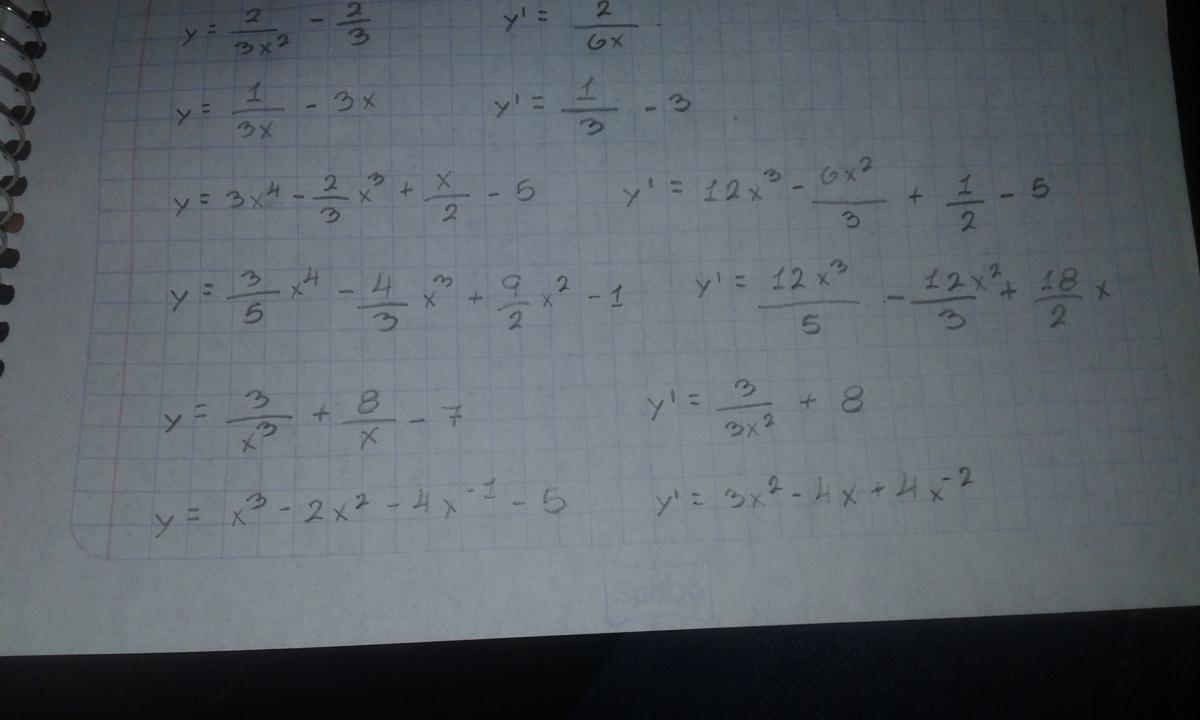 y = 2/3x² - 2/3    y' = 2/6x
y = 1/3x - 3x    y' = 1/3 - 3
y = 3x⁴ - 2/3 x³ + x/2 - 5    y' = 12x³ - 6x²/3 + 1/2 - 5
y = 3/5 x⁴ - 4/3 x³ + 9/2 x² - 1    y' = 12x³/5 - 12x²/3 + 18/2 x
y = 3/x³ + 8/x - 7    y' = 3/3x² + 8
y = x³ - 2x² - 4x⁻¹ - 5    y' = 3x² - 4x + 4x⁻²